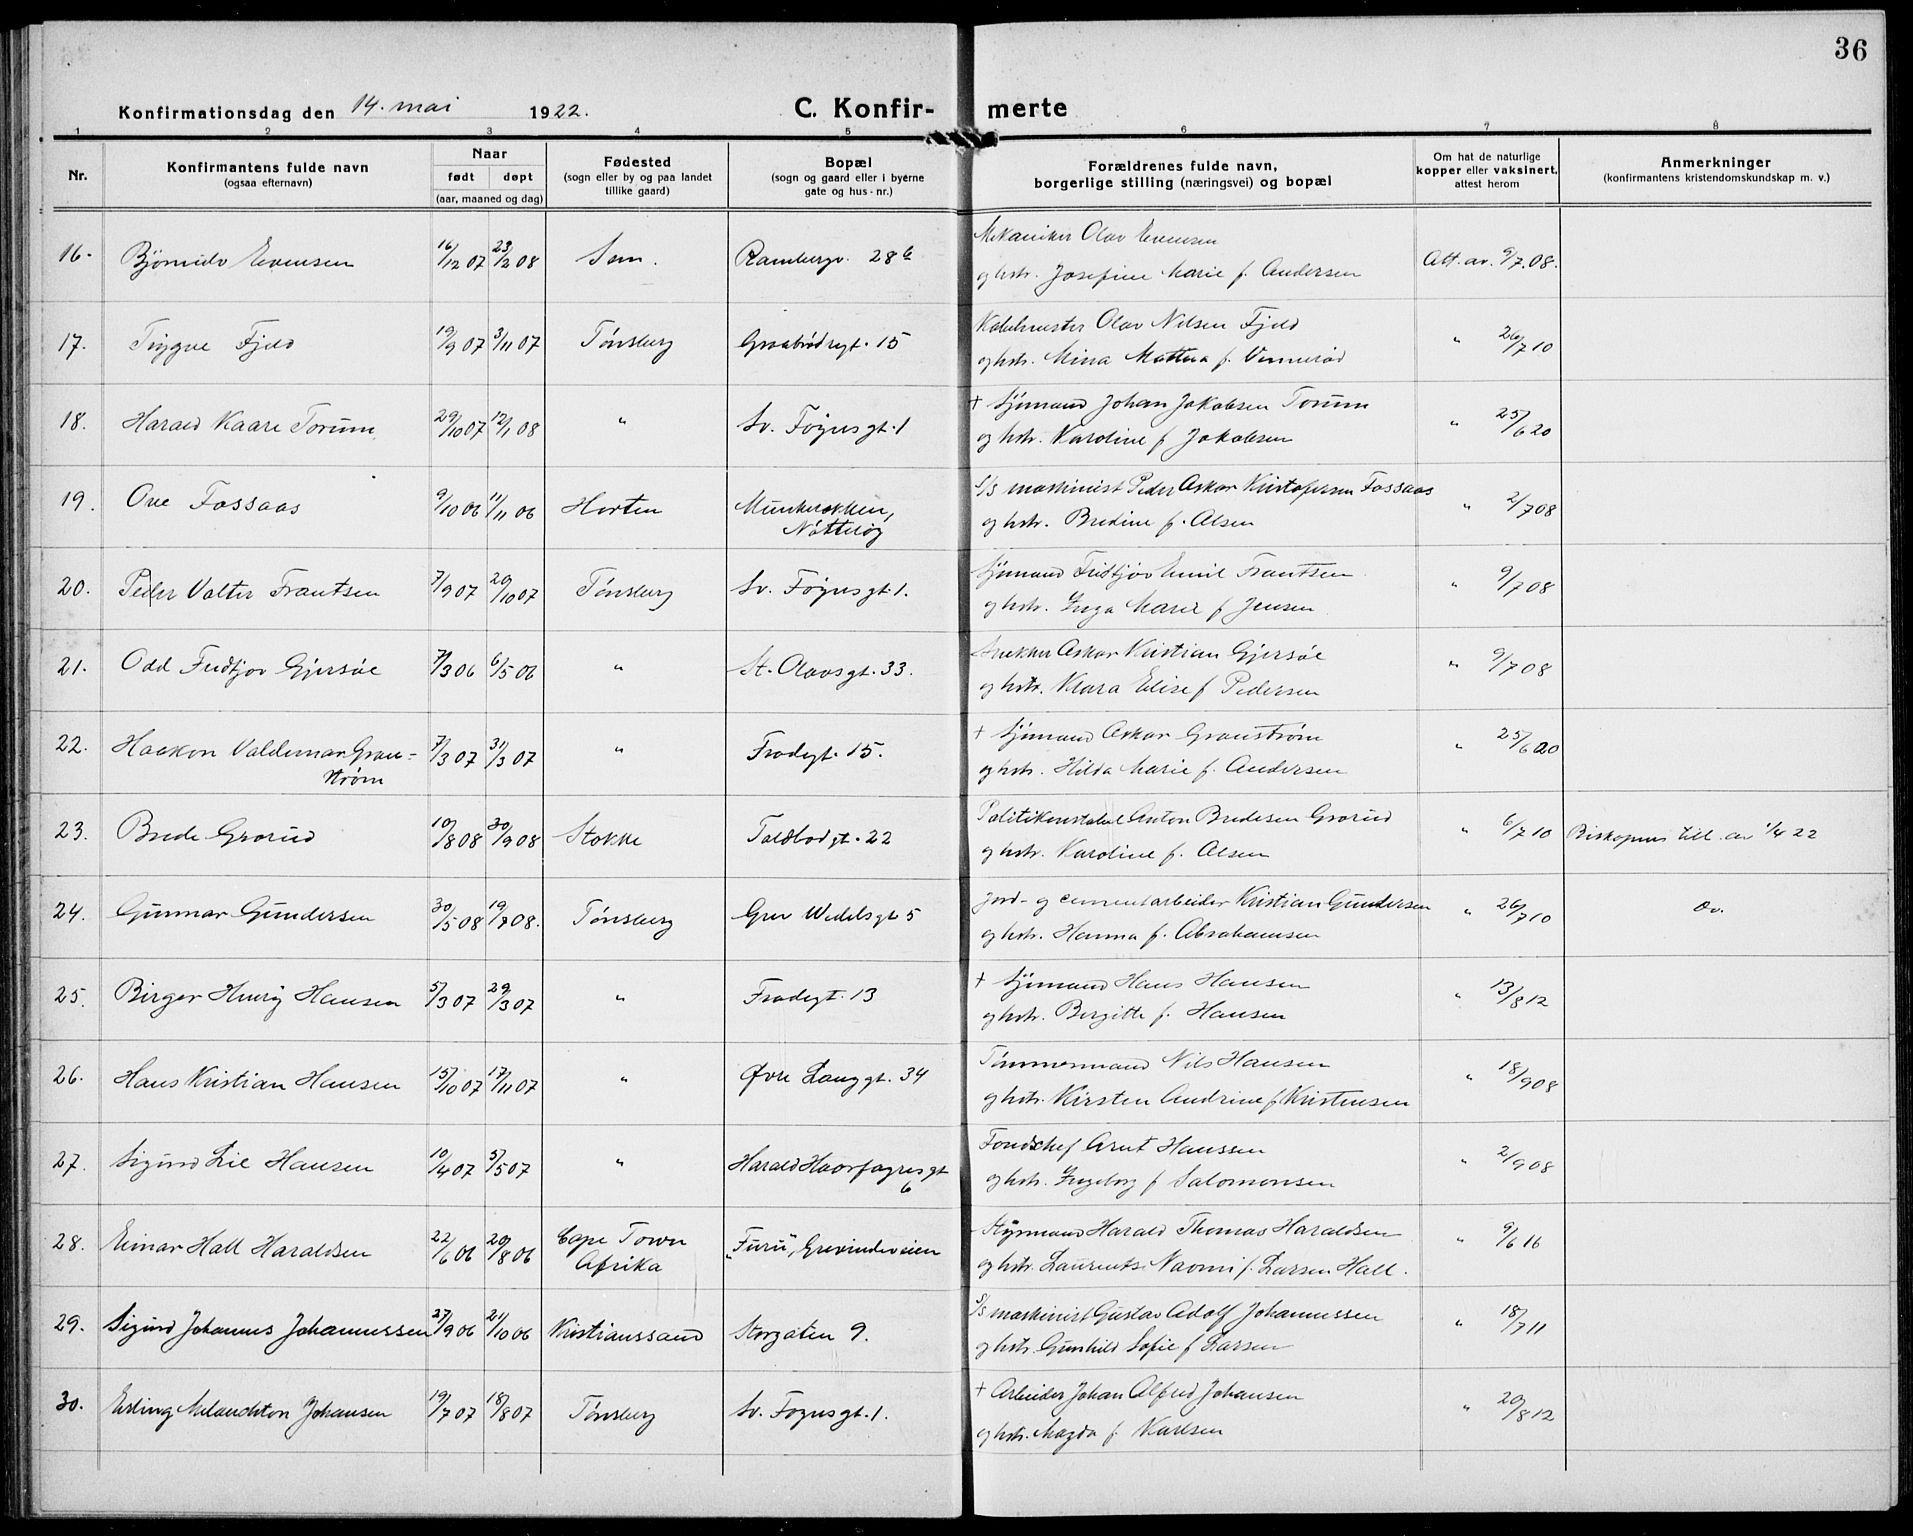 36
Konfirmationsdag den 14. mai 1922. C. Konfir- merte
1 2 3 4 5 6 7 8
Nr. Konfirmantens fulde navn (ogsaa efternavn) Naar født døpt (aar, maaned og dag) Fødested (sogn eller by og paa landet tillike gaard) Bopæl (sogn og gaard eller i byerne gate og hus-nr.) Forældrenes fulde navn, borgerlige stilling (næringsvei) og bopæl Om hat de naturlige kopper eller vaksinert, attest herom Anmerkninger (konfirmantens kristendomskundskap m. v.)
16. Evensen 16/12 07 23/2 08 Sem. Rambergv. 28 b Mekaniker Olav Evensen
og hstr. Josefine Marie f. Andersen Att. av. 9/7.08.
17. Trygve Fjeld 19/9 07 3/11 07 Tønsberg Graabrødregt. 15 Olav Nilsen Fjeld
og hstr. Mina Mathea f. Vennerød " 26/7 10
18. Harald Kaare Torum 29/10 07 12/1 08 " Sv. Føynsgt. 1 + Sjømand Johan Jakobsen Torum
og hstr. Karoline f. Jakobsen " 25/6 20
19. Ove Fossaas 9/10 06 11/11 06 Horten Munkerekken,
Nøtterøy S/S maskinist Peder Oskar Kristofersen Fossaas
og hstr. Bredine f. Olsen " 2/7 08
20. Peder Valter Frantsen 7/9 07 20/10 07 Tønsberg Sv. Føynsgt. 1. Sjømand Fridtjov Emil Frantsen
og hstr. Inga Marie f. Jensen " 9/7 08
21. Odd Fridtjov Gjersøe 7/3 06 6/5 06 " St. Olavsgt. 33. Snekker Oskar Kristian Gjersøe
og hstr. Klara Elise f. Pedersen " 9/7 08
22. Haakon Valdemar Gran-
strøm 7/3 07 31/3 07 " Frodegt. 15. + Sjømand Oskar Granstrøm
og hstr. Hilda Marie f. Andersen " 25/6 20
23. Brede Grorud 10/8 08 30/9 08 Stokke Toldbodgt. 22 Politikonstabel Anton Bredesen Grorud
og hstr. Karoline f. Olsen " 6/7 10 Biskopens till. av 1/4 22
24. Gunnar Gundersen 30/5 08 19/7 08. Tønsberg Grev Wedelsgt 5 Jord- og cementarbeider Kristian Gundersen
og hstr. Hanna f. Abrahamsen " 26/7 10
25. Birger Henry Hansen 5/3 07 29/3 07 " Frodegt. 13 + Sjømand Hans Hansen
og hstr. Birgitte f. Hansen " 13/8 12
26. Hans Kristian Hansen 15/10 07 17/11 07 " Øvre Langgt. 34 Tømmermand Nils Hansen
og hstr. Kirsten Andrine f. Kristensen " 18/9 08
27. Sigurd Lie Hansen 10/4 07 5/5 07 " Harald Haarfagresgt
6 Fondschef Arnt Hanssen
og hstr. Ingeborg f. Salomonsen " 2/9 08
28. Einar Hall Haraldsen 22/6 06 20/8 06 Cape Town
Afrika "Furu", Grevindeveien Styrmand Harald Thomas Haraldsen
og hstr. Laurentse Naomi f. Larsen Hall. " 9/6 16
29. Sigurd Johannes Johannessen 27/9 06 21/10 06 Kristianssand Storgaten 9. S/S maskinist Gustav Adolf Johannessen
og hstr. Gunhild Sofie f. Larsen " 18/7 11
30. Erling Melanchton Johansen 19/7 07 18/8 07 Tønsberg Sv. Føynsgt. 1. + Arbeider Johan Alfred Johansen
og hstr. Magda f. Karlsen " 20/8 12